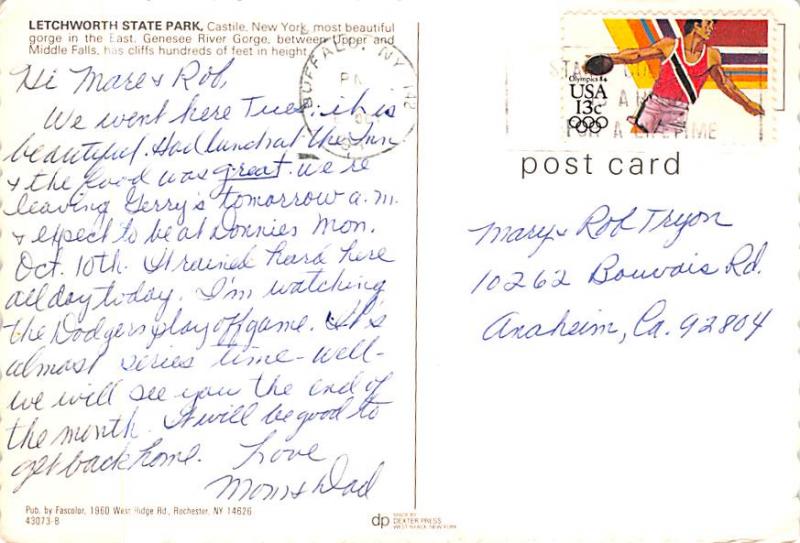 LETCHWORTH STATE PARK, Castile, New York, most beautiful
gorge in the East. Genesee River Gorge, between Upper and
Middle Falls, has cliffs hundreds of feet in height.
Hi Mare & Rob,
We went here Tues. it is
beautiful. Had lunch at the Inn
& the food was great. we're
leaving Gerry's tomorrow a.m.
& expect to be at Donnies Mon.
Oct. 10th. It rained hard here
all day today. I'm watching
the Dodgers play off game. It's
almost series time - well -
we will see you the end of
the month. It will be good to
get back home. Love
Mom & Dad
Pub. by Fascolor, 1960 West Ridge Rd., Rochester, NY 14626
43073-B
dp
MADE BY
DEXTER PRESS
WEST NYACK, NEW YORK
BUFFALO, NY 142
PM
Olympics 84
USA
13c
FOR A LIFETIME
post card
Mary & Rob Tryon
10262 Bouvais Rd.
Anaheim, Ca. 92804